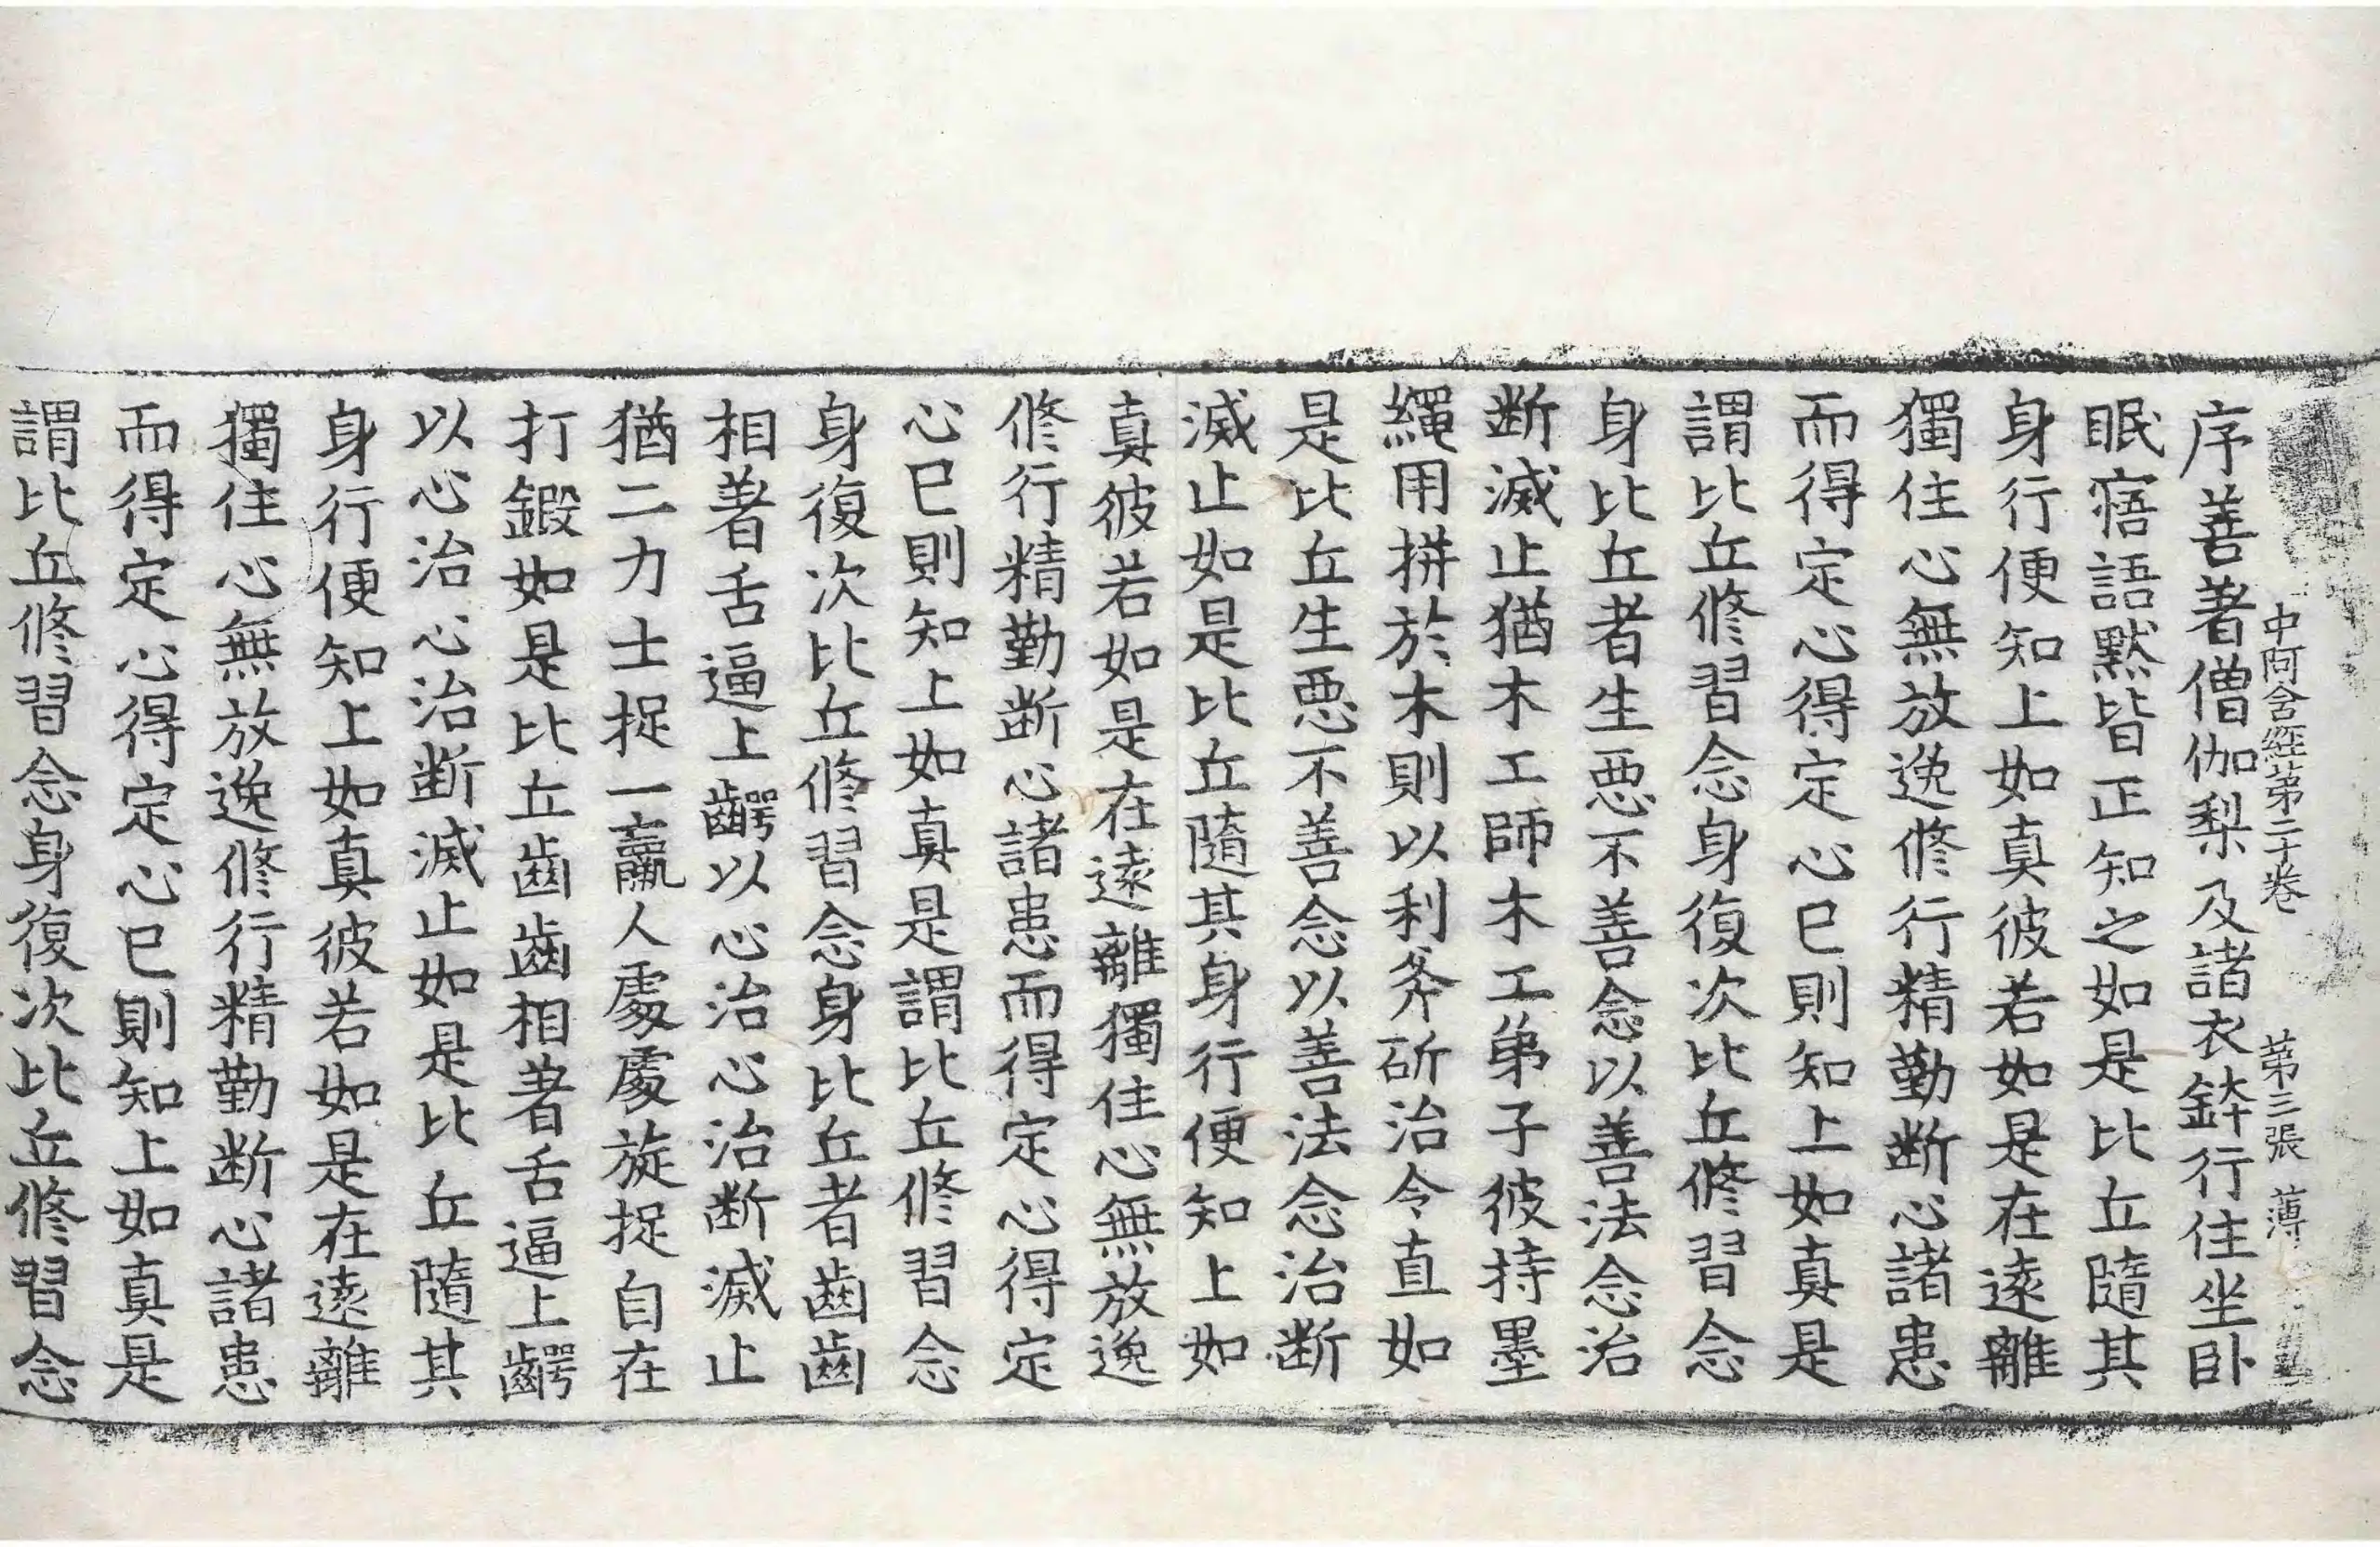 中阿含經第二十卷 第三張 薄
序善著僧伽梨及諸衣鉢行住坐卧
眠寤語默皆正知之如是比丘隨其
身行便知上如真彼若如是在遠離
獨住心無放逸修行精勤断心諸患
而得定心得定心已則知上如真是
謂比丘修習念身復次比丘修習念
身比丘者生惡不善念以善法念治
断滅止猶木工師木工弟子彼持墨
繩用拼於木則以利斧斫治令直如
是比丘生惡不善念以善法念治断
滅止如是比丘隨其身行便知上如
真彼若如是在遠離獨住心無放逸
修行精勤断心諸患而得定心得定
心已則知上如真是謂比丘修習念
身復次比丘修習念身比丘者齒齒
相著舌逼上齶以心治心治断滅止
猶二力士捉一羸人處處旋捉自在
打鍛如是比丘齒齒相著舌逼上齶
以心治心治断滅止如是比丘隨其
身行便知上如真彼若如是在遠離
獨住心無放逸修行精勤断心諸患
而得定心得定心已則知上如真是
謂比丘修習念身復次比丘修習念